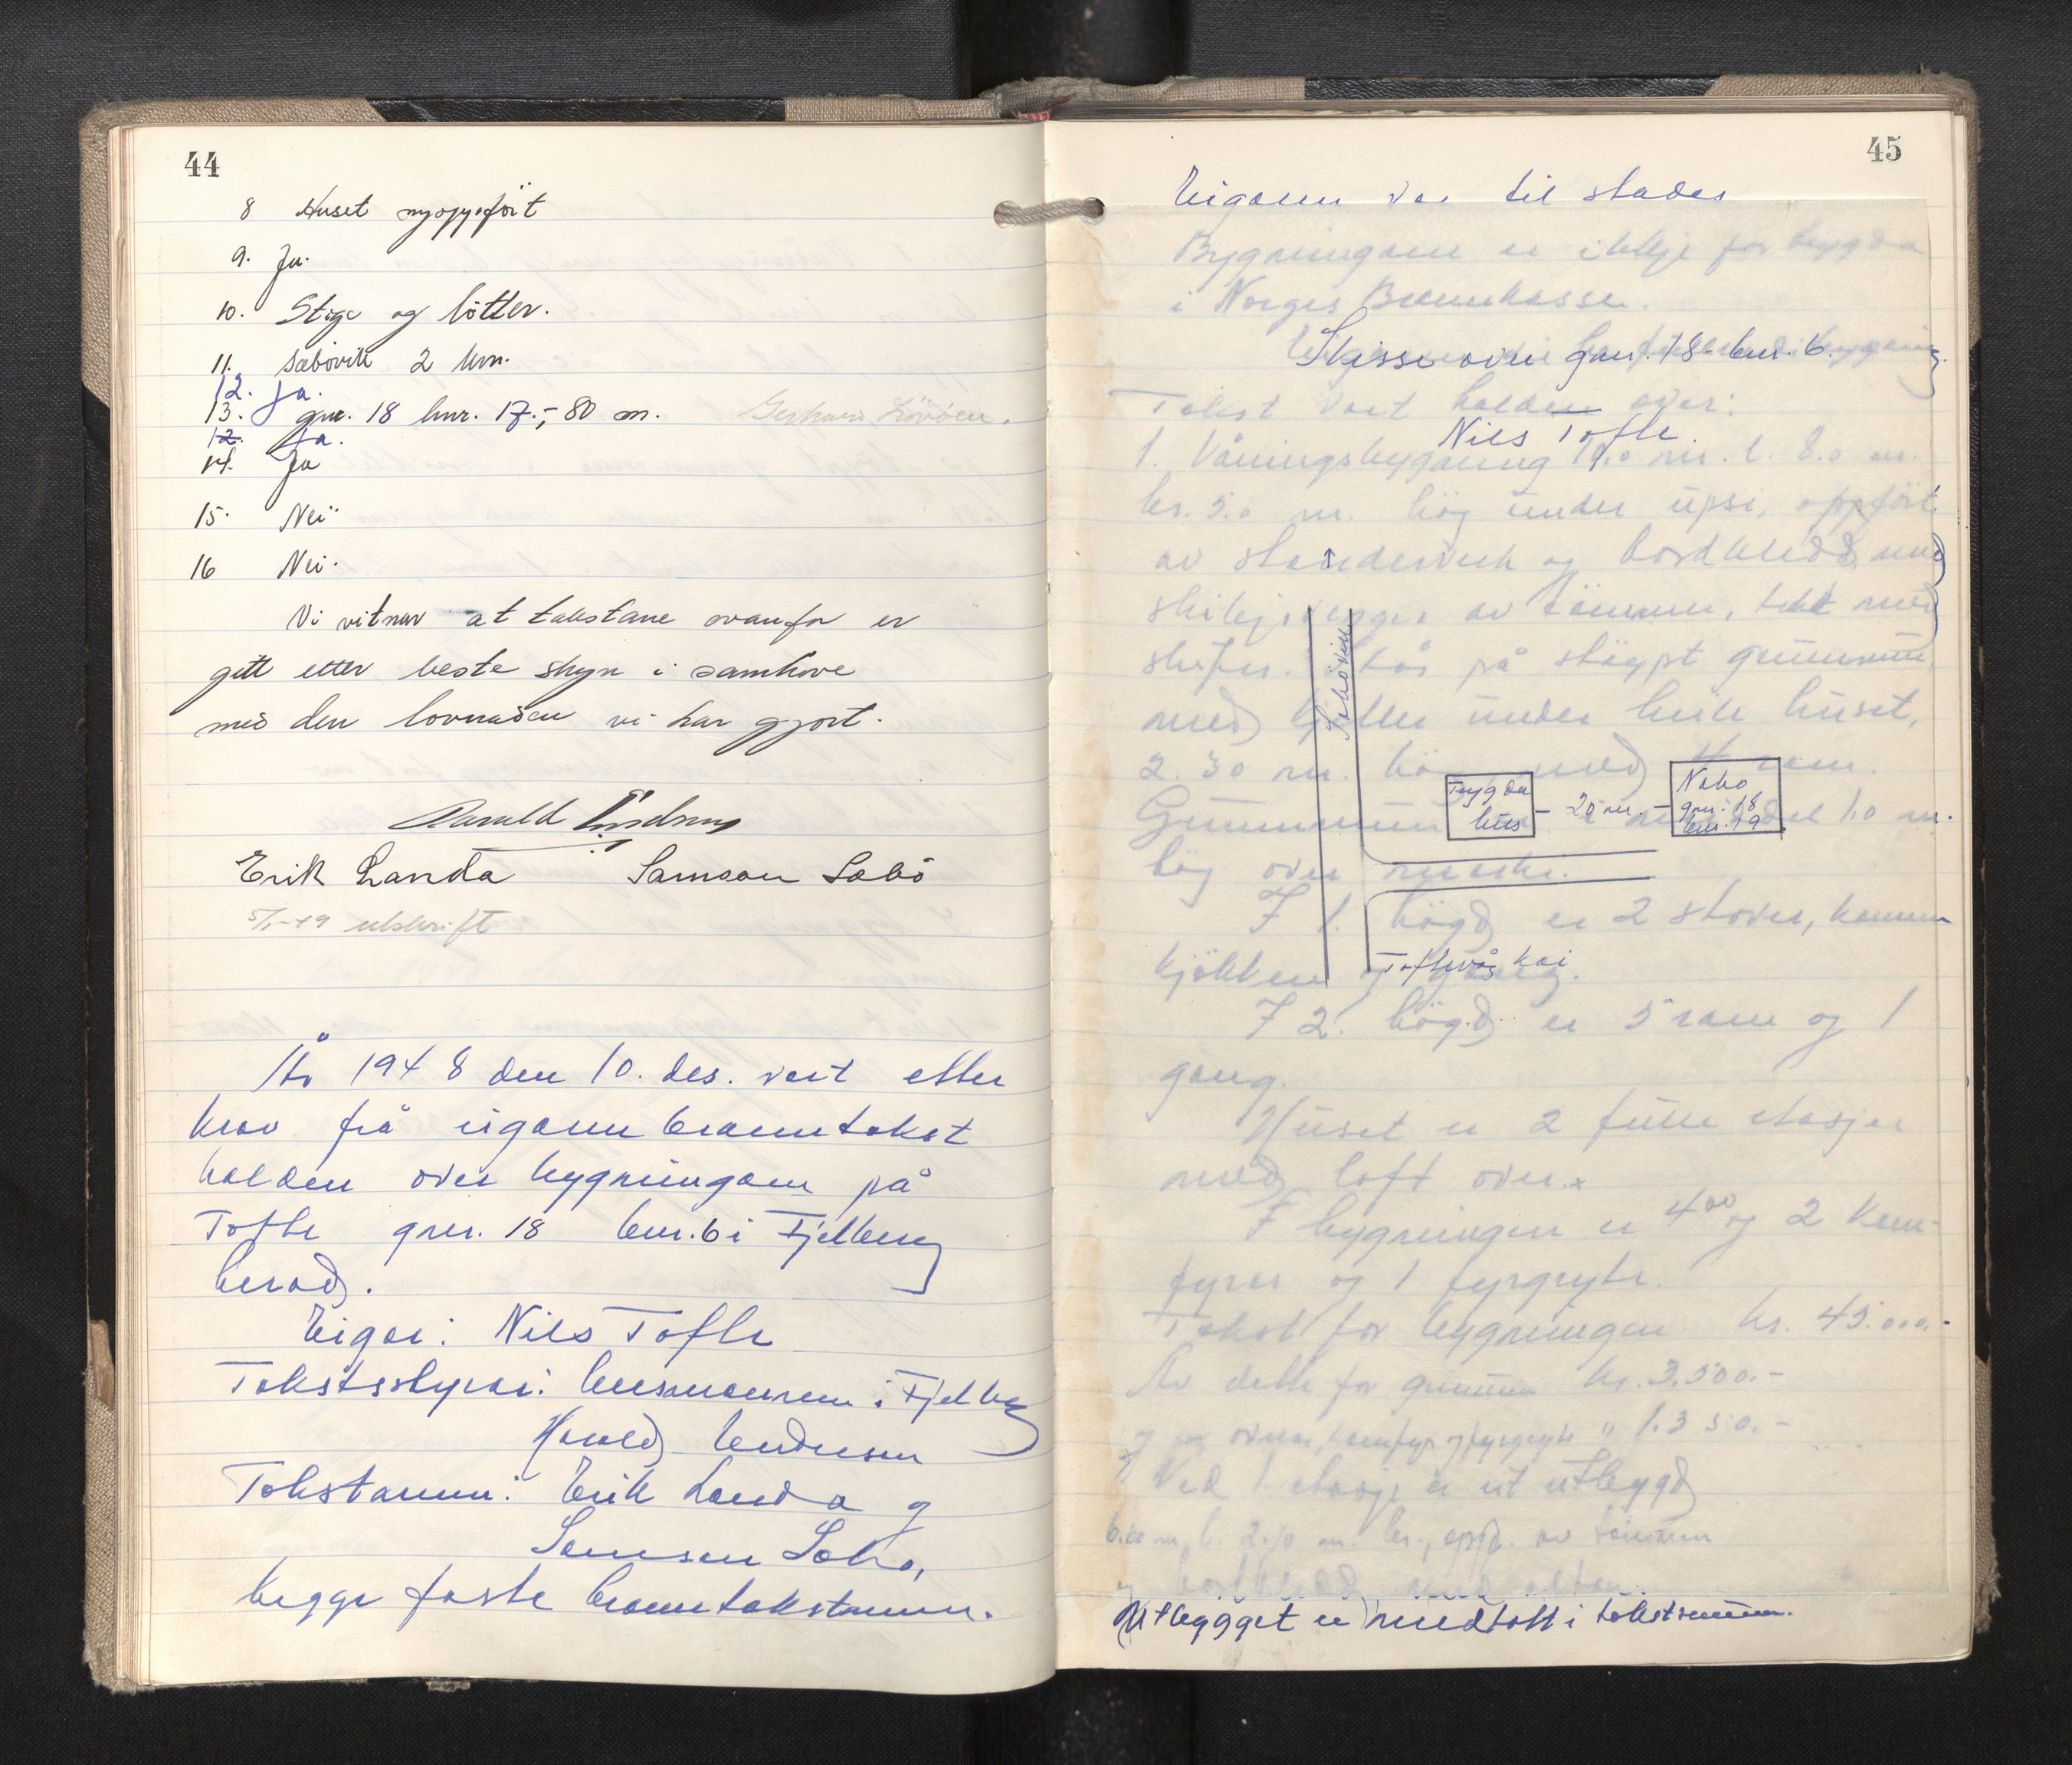 44
8 Huset nyoppfört
9. Ja.
10. Stige og bötter.
11. Sæbövik 2 km.
12. Ja.
13. gnr. 18 bnr. 17.-, 80 m. Gerhard
12. Ja.
14. Ja
15. Nei
16 Nei.
Vi vitnar at takstane ovanfor er
gitt etter beste skyn i samhöve
med den lovnaden vi har gjort.
Harald
Erik Landa Samson Sæbö
5/1-49 utskrift
År 1948 den 10. des. vart etter
krav frå eigaren branntakst
halden over bygningane på
Tofte gnr. 18 bnr. 6 i Fjelberg
herad.
Eigar: Nils Tofte
Takststyrar: lensmannen i Fjelberg
Harald Endresen
Takstmenn: Erik Landa og
Samson Sæbö,
begge faste branntakstmenn.
45
Eigaren var til stades
Bygningane er ikkje för trygda
i Norges Brannkasse.
Skisse over gnr. 18 bnr. 6.
Takst vart halden over:
Nils Tofte.
1. Våningsbygning 10.0 m. l. 8.0 m.
br. 5.0 m. høg under upsi, oppfört
av standerverk og bordkledd, med
skiljevegger av tömmer, tekt med
skifer. Står på stöypt grunnmur,
med kjeller under heile huset,
2.30 m. høg med 4 rom.
Sæbövik
Trygda
hus
20 m.
Nabo
gnr. 18
bnr. 19
Grunnmuren 1.0 m.
høg over marki.
I 1. högd er 2 stover, kammer
kjökken og gang.
Toftevåg kai
I 2. högd er 5 rom og 1
gang.
Huset er 2 fulle etasjer
med loft over.
I bygningen er 4 ovnar og 2 kom-
fyrar og 1 fyrgryte.
Takst for bygningen kr. 45.000.-
Av dette for grunnmur kr. 3.500.-
og for ovnar, komfyr og fyrgryte " 1.350.-
Ved 1 etasje er eit utbygg
6.60 m. l. 2.10 m. br., oppf. av tömmer
og bordkledd med altan.
Utbygget er medtatt i takstsummen.